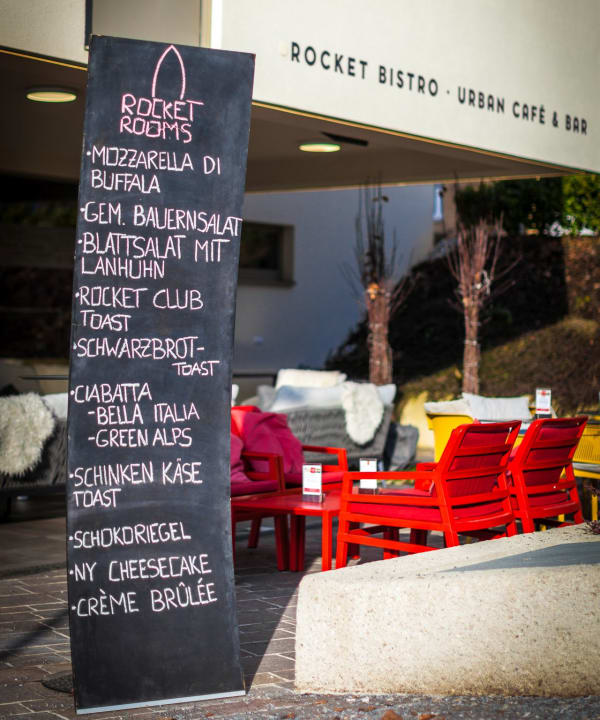 ROCKET BISTRO · URBAN CAFÉ & BAR
ROCKET
ROOMS
·MOZZARELLA DI
BUFFALA
·GEM. BAUERNSALAT
·BLATTSALAT MIT
LANHUHN
·ROCKET CLUB
TOAST
·SCHWARZBROT-
TOAST
·CIABATTA
-BELLA ITALIA
-GREEN ALPS
·SCHINKEN KÄSE
TOAST
·SCHOKORIEGEL
·NY CHEESECAKE
·CRÈME BRÛLÉE